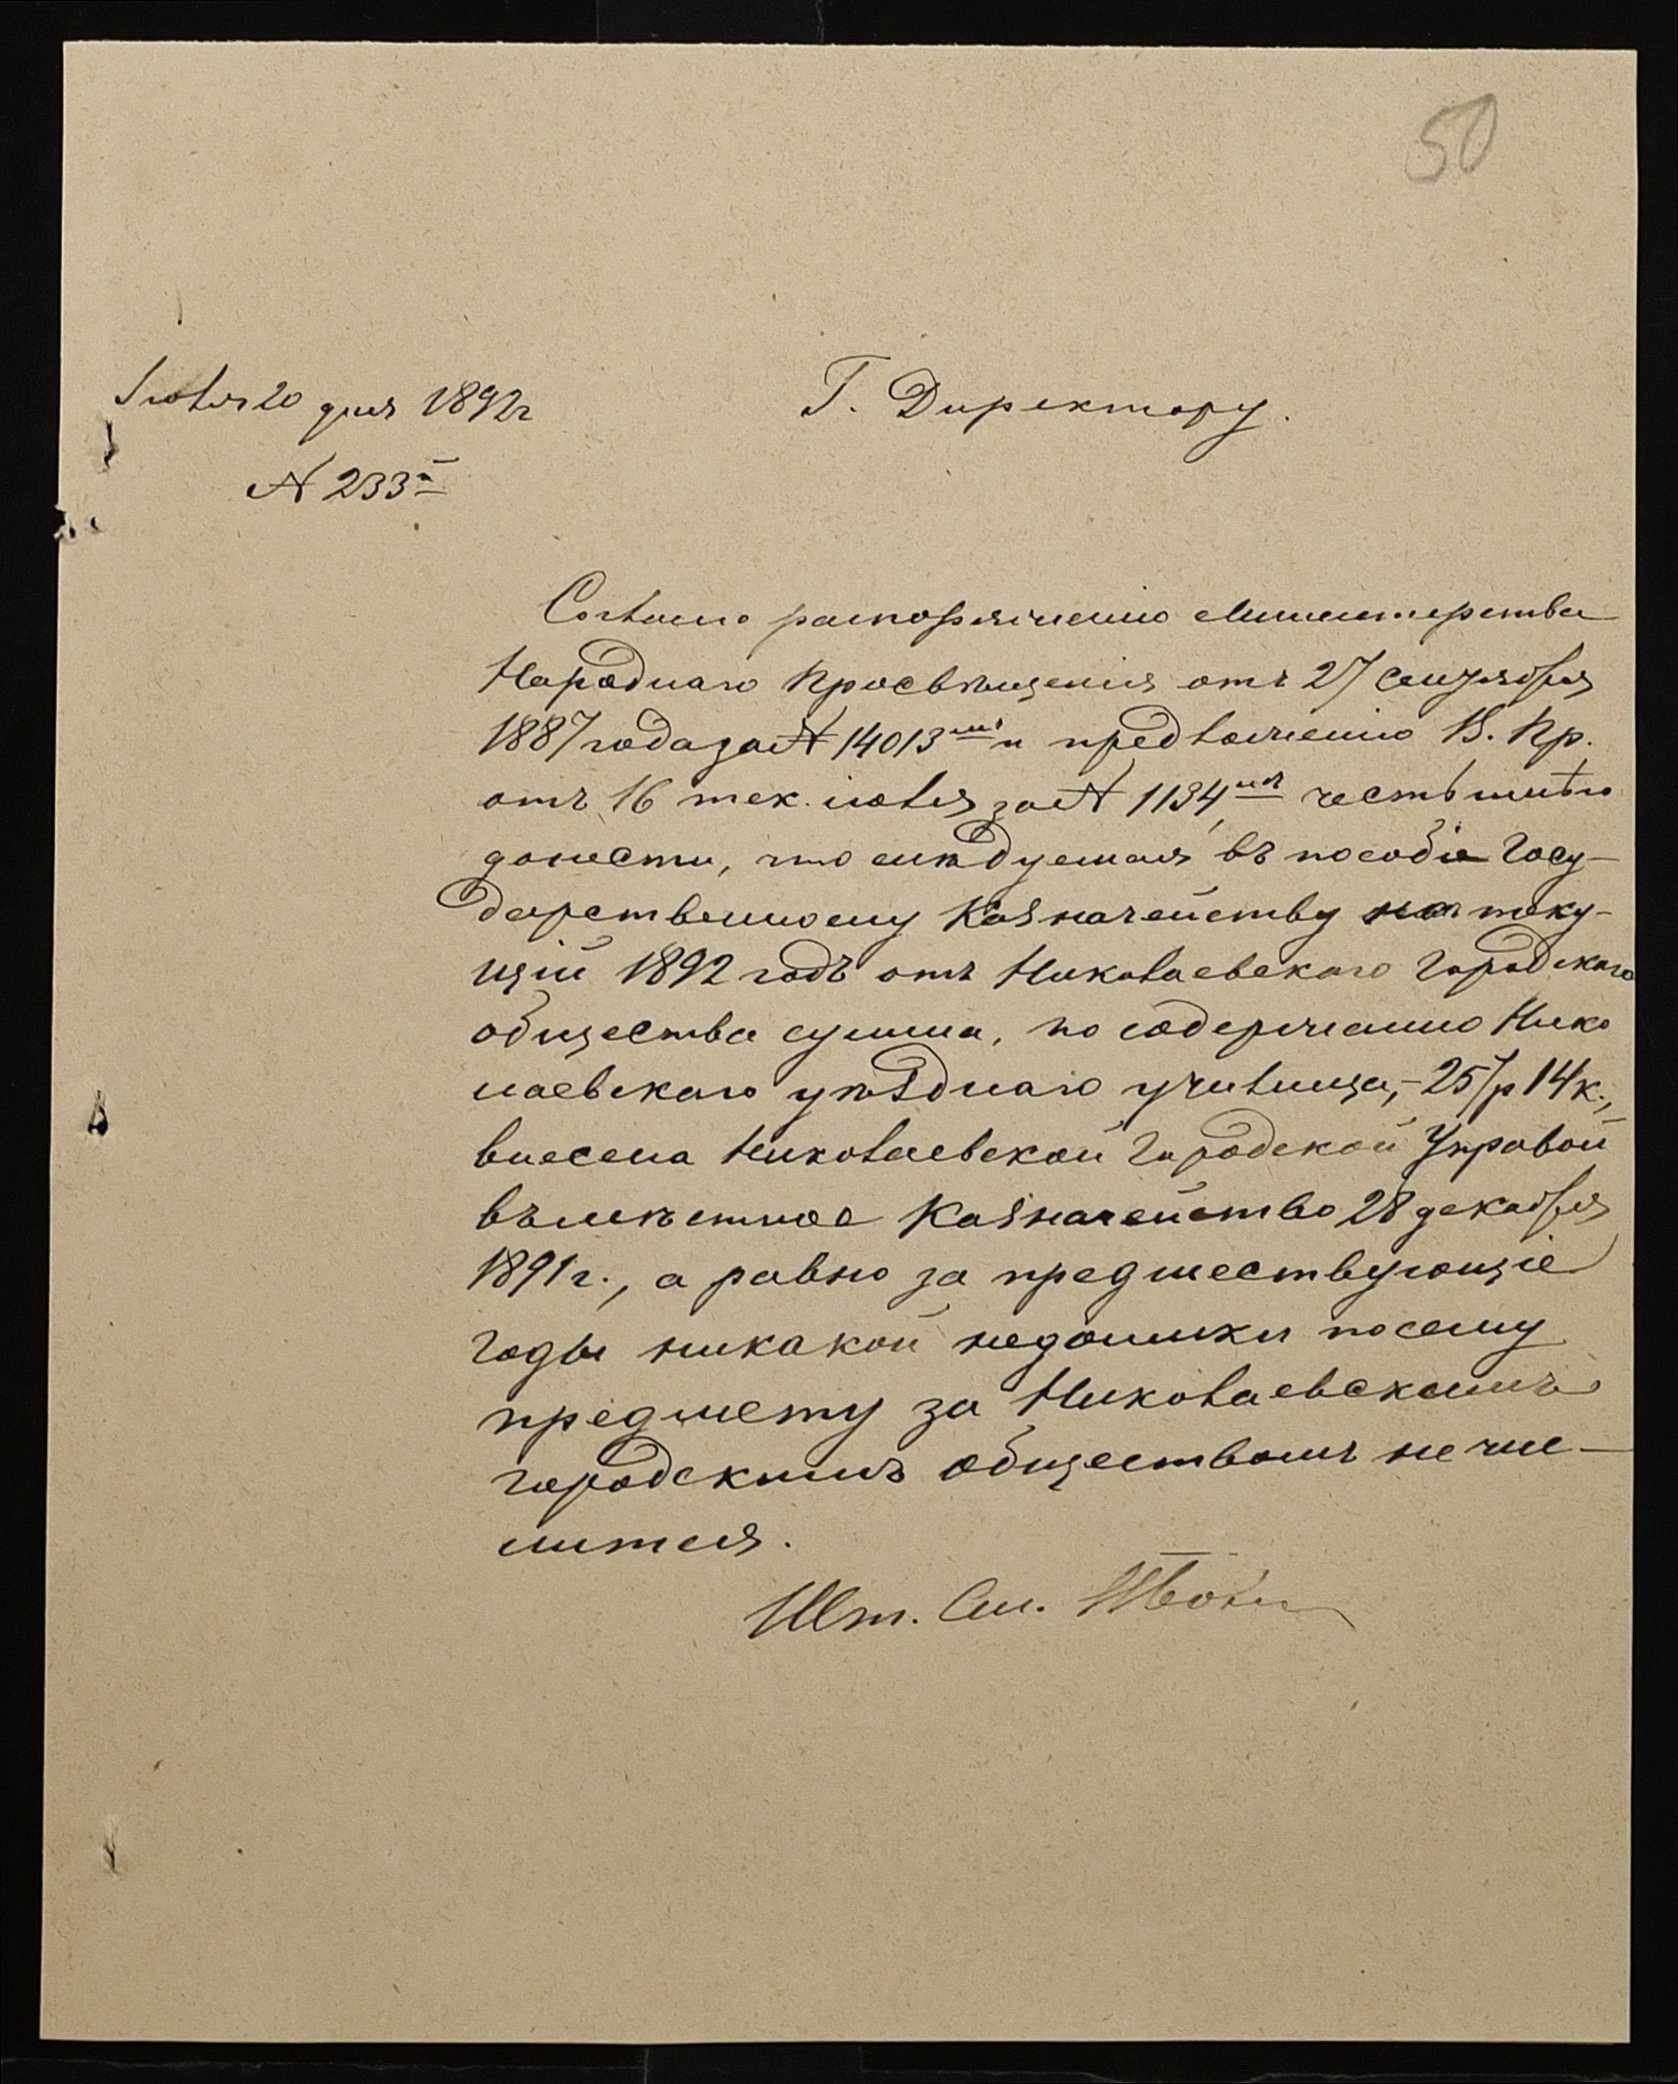 50
Іюля 20 дня 1892г
Г. Директору.
№ 233й
Согласно распоряженію Министерства
Народнаго Просвѣщенія отъ 27 Сентября
1887 года за № 14013мъ и предложенію В. Пр.
отъ 16 тек. іюля за № 1134,мъ честь имѣю
донести, что слѣдуемая въ пособіе Госу-
дарственному Казначейству на теку-
щій 1892 годъ отъ Николаевскаго Городскаго
общества сумма, по содержанію Нико
лаевскаго уѣзднаго училища,- 257р 14к.,
внесена Николаевской Городской Управой
въ мѣстное Казначейство 28 декабря
1891г., а равно за предшествующіе
годы никакой недоимки по сему
предмету за Николаевскимъ
городскимъ обществомъ не чис-
лится.
Шт. См.